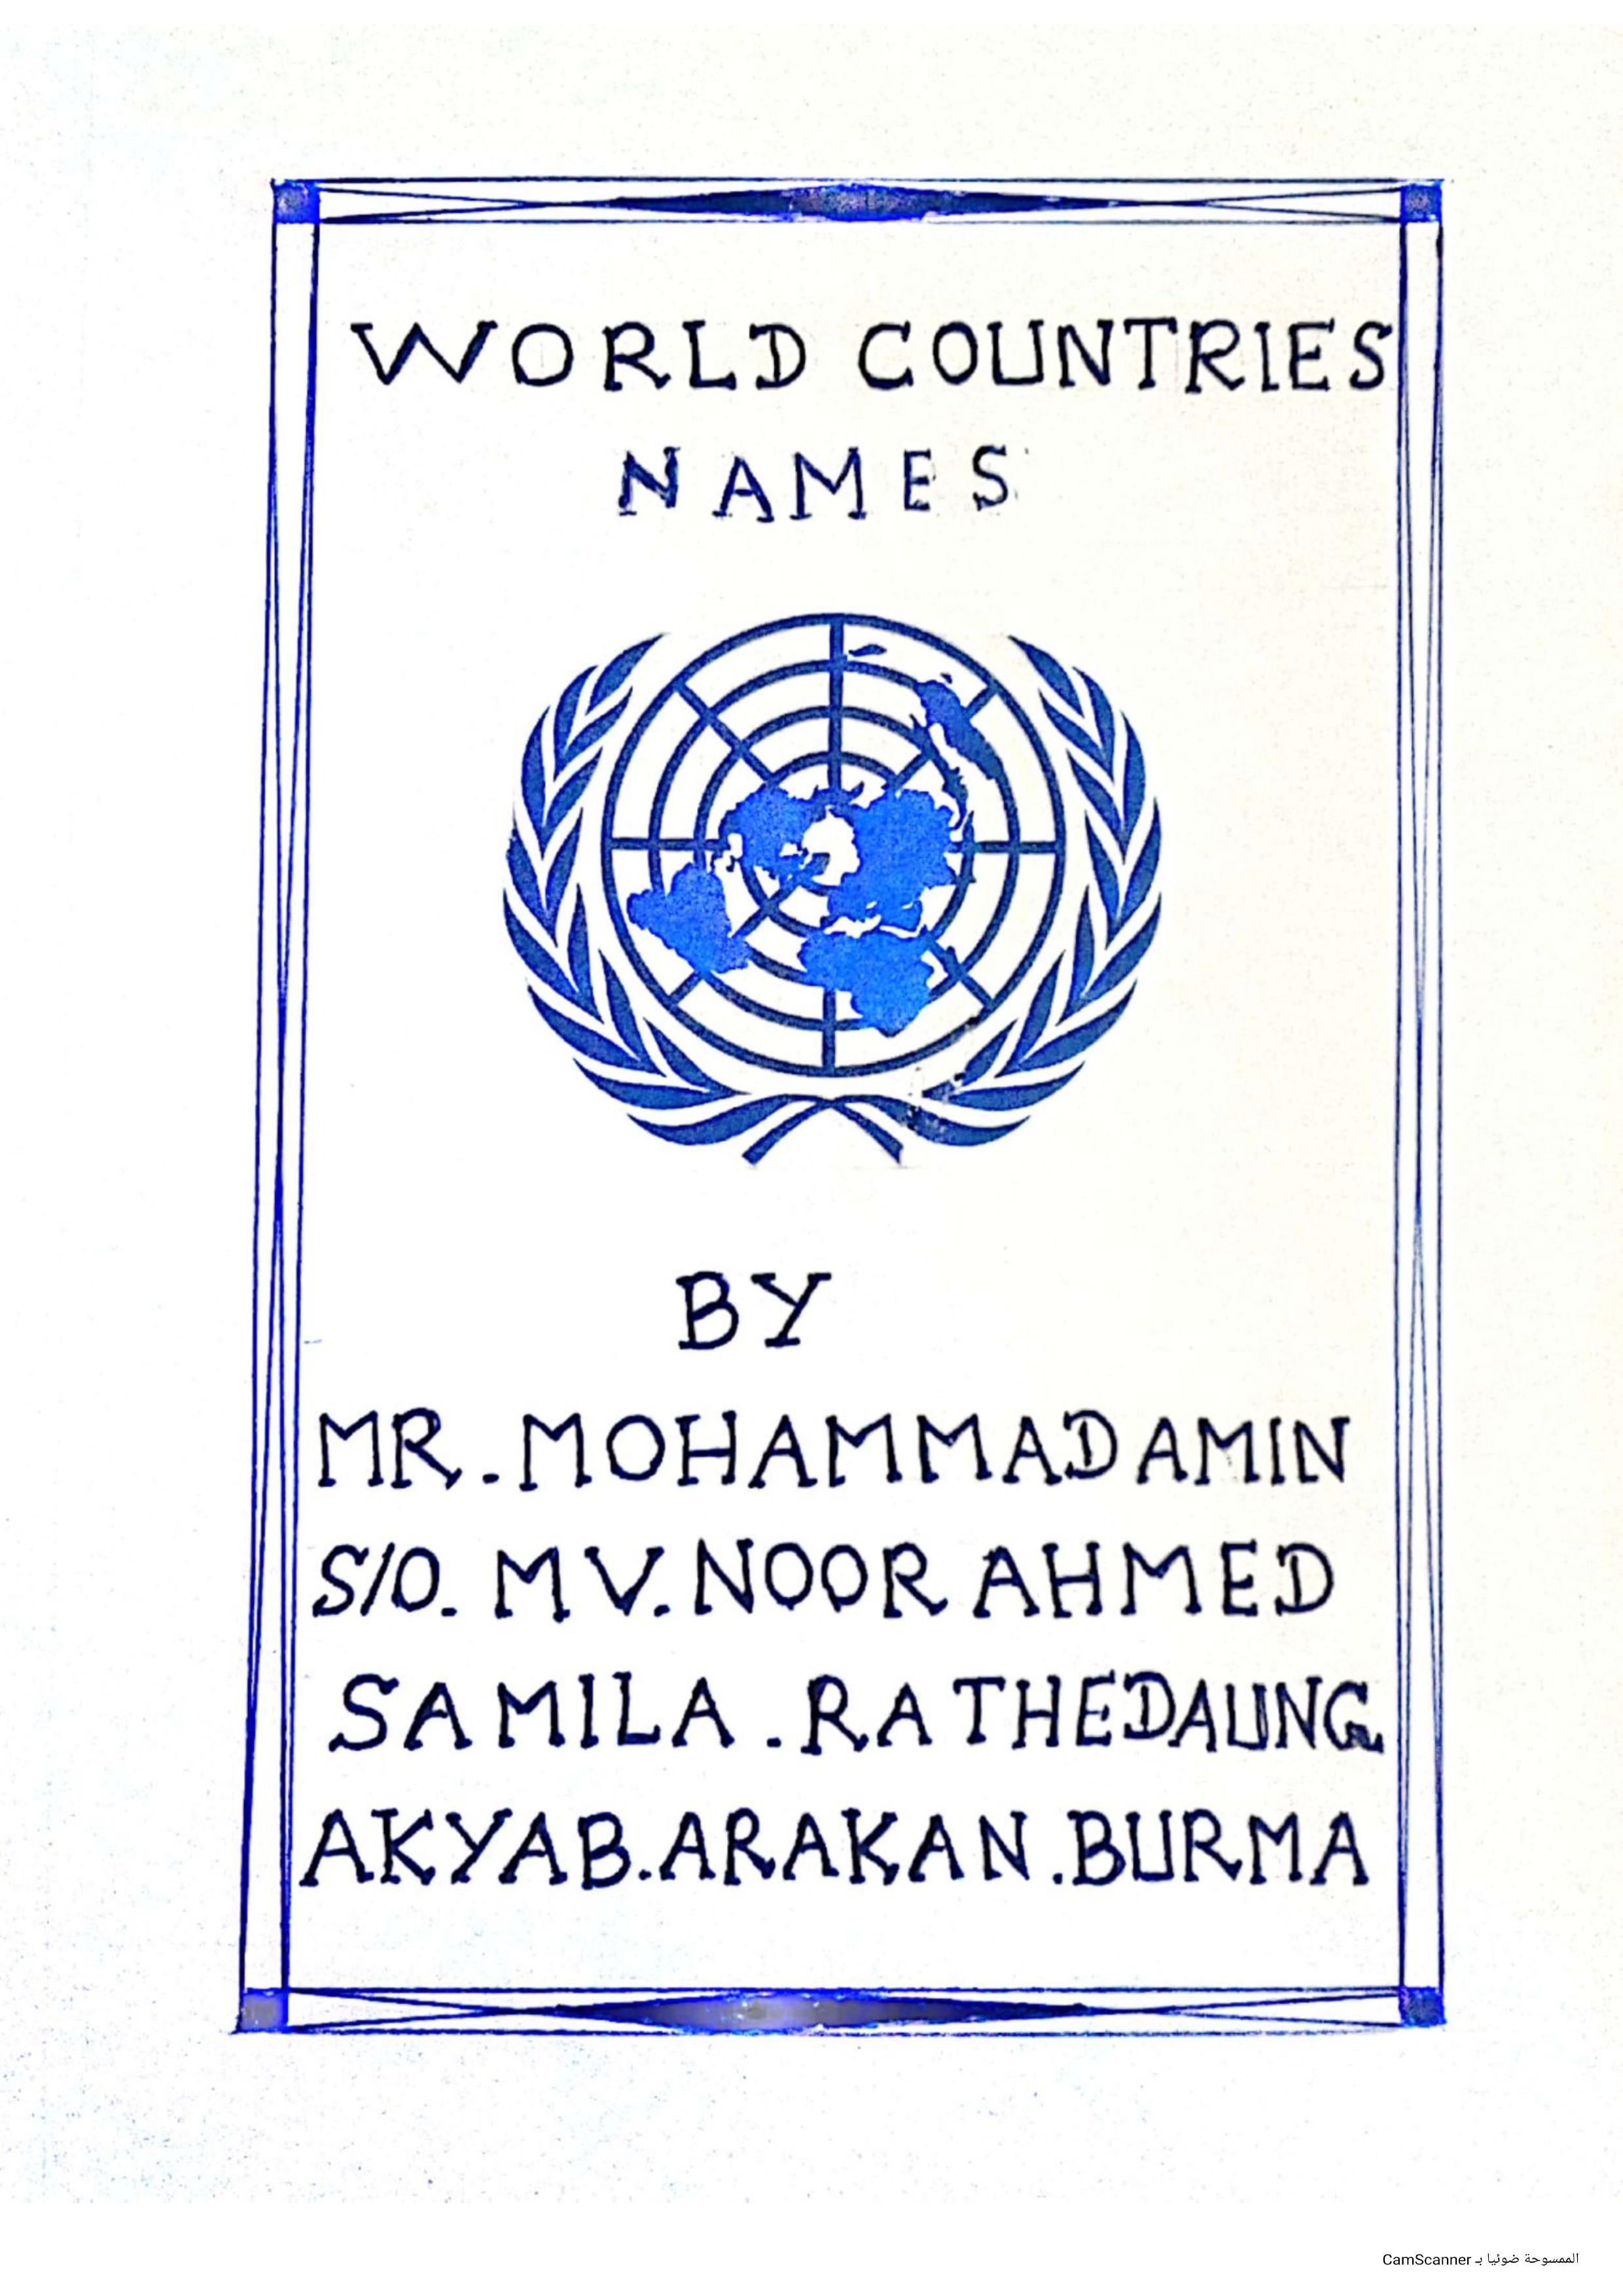 WORLD COUNTRIES
NAMES
BY
MR. MOHAMMAD AMIN
S/O. MV. NOOR AHMED
SAMILA. RATHEDAUNG
AKYAB. ARAKAN. BURMA
الممسوحة ضوئيا بـ CamScanner